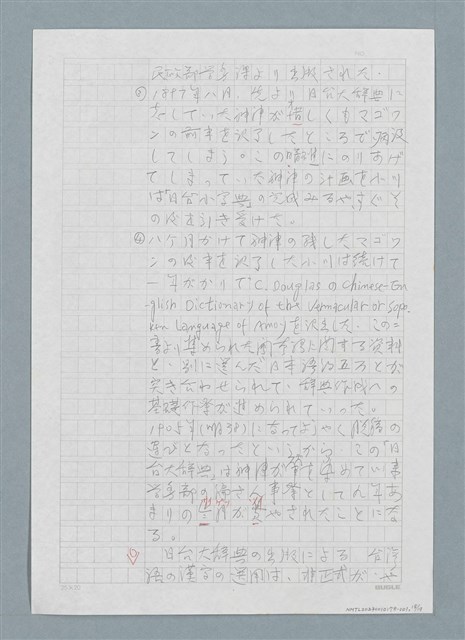 民政部学務課より出版された.
③ 1897年八月、先より日台大辞典に
していた神津が惜しくもマゴワ
ンの前半を訳了したところで病没
してしまう。この暗礁にのりあげ
てしまっていた神津の計画を小川
は「日台小字典」の完成みるやすぐそ
の後を引き受けた。
④ 八ヶ月かけて神津の残したマゴワ
ンの後半を訳了した小川は続けて
一年がかりでC. Douglasのchinese-En-
glish Dictionary of the vernacular or Spo-
ken Language of Amoyを訳した.この二
書より集められた関する資料
と、別に選んだ日本語約五万とが
突き合わせられて、辞典作成への
基礎作業が進められていった。
1905年(明38)になってようやく脱稿の
運びとなったというから、この「日
台大辞典」は神津が筆を染めてい
学務部の事業として八年あ
まりの月がやされたことにな
る。
⑩ 日台大辞典の出版による、台湾
語の漢字の選用は、非正式が
NMTL